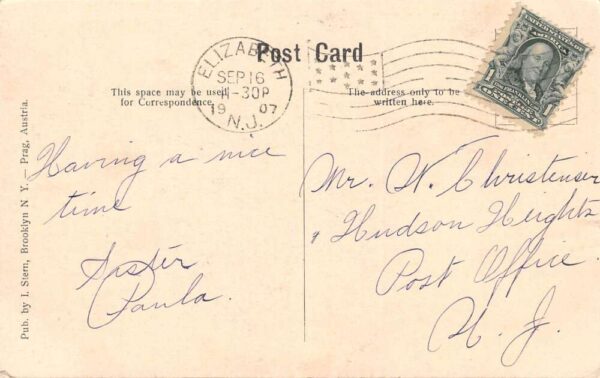 Post Card
ELIZABETH
SEP 16
-30P
1907
N.J.
This space may be used
for Correspondence.
The address only to be
written here.
Having a nice
time
Sister
Paula.
Mr. W. Christensen
Hudson Heights
Post Office.
N. J.
Pub. by I. Stern, Brooklyn N Y. — Prag, Austria.